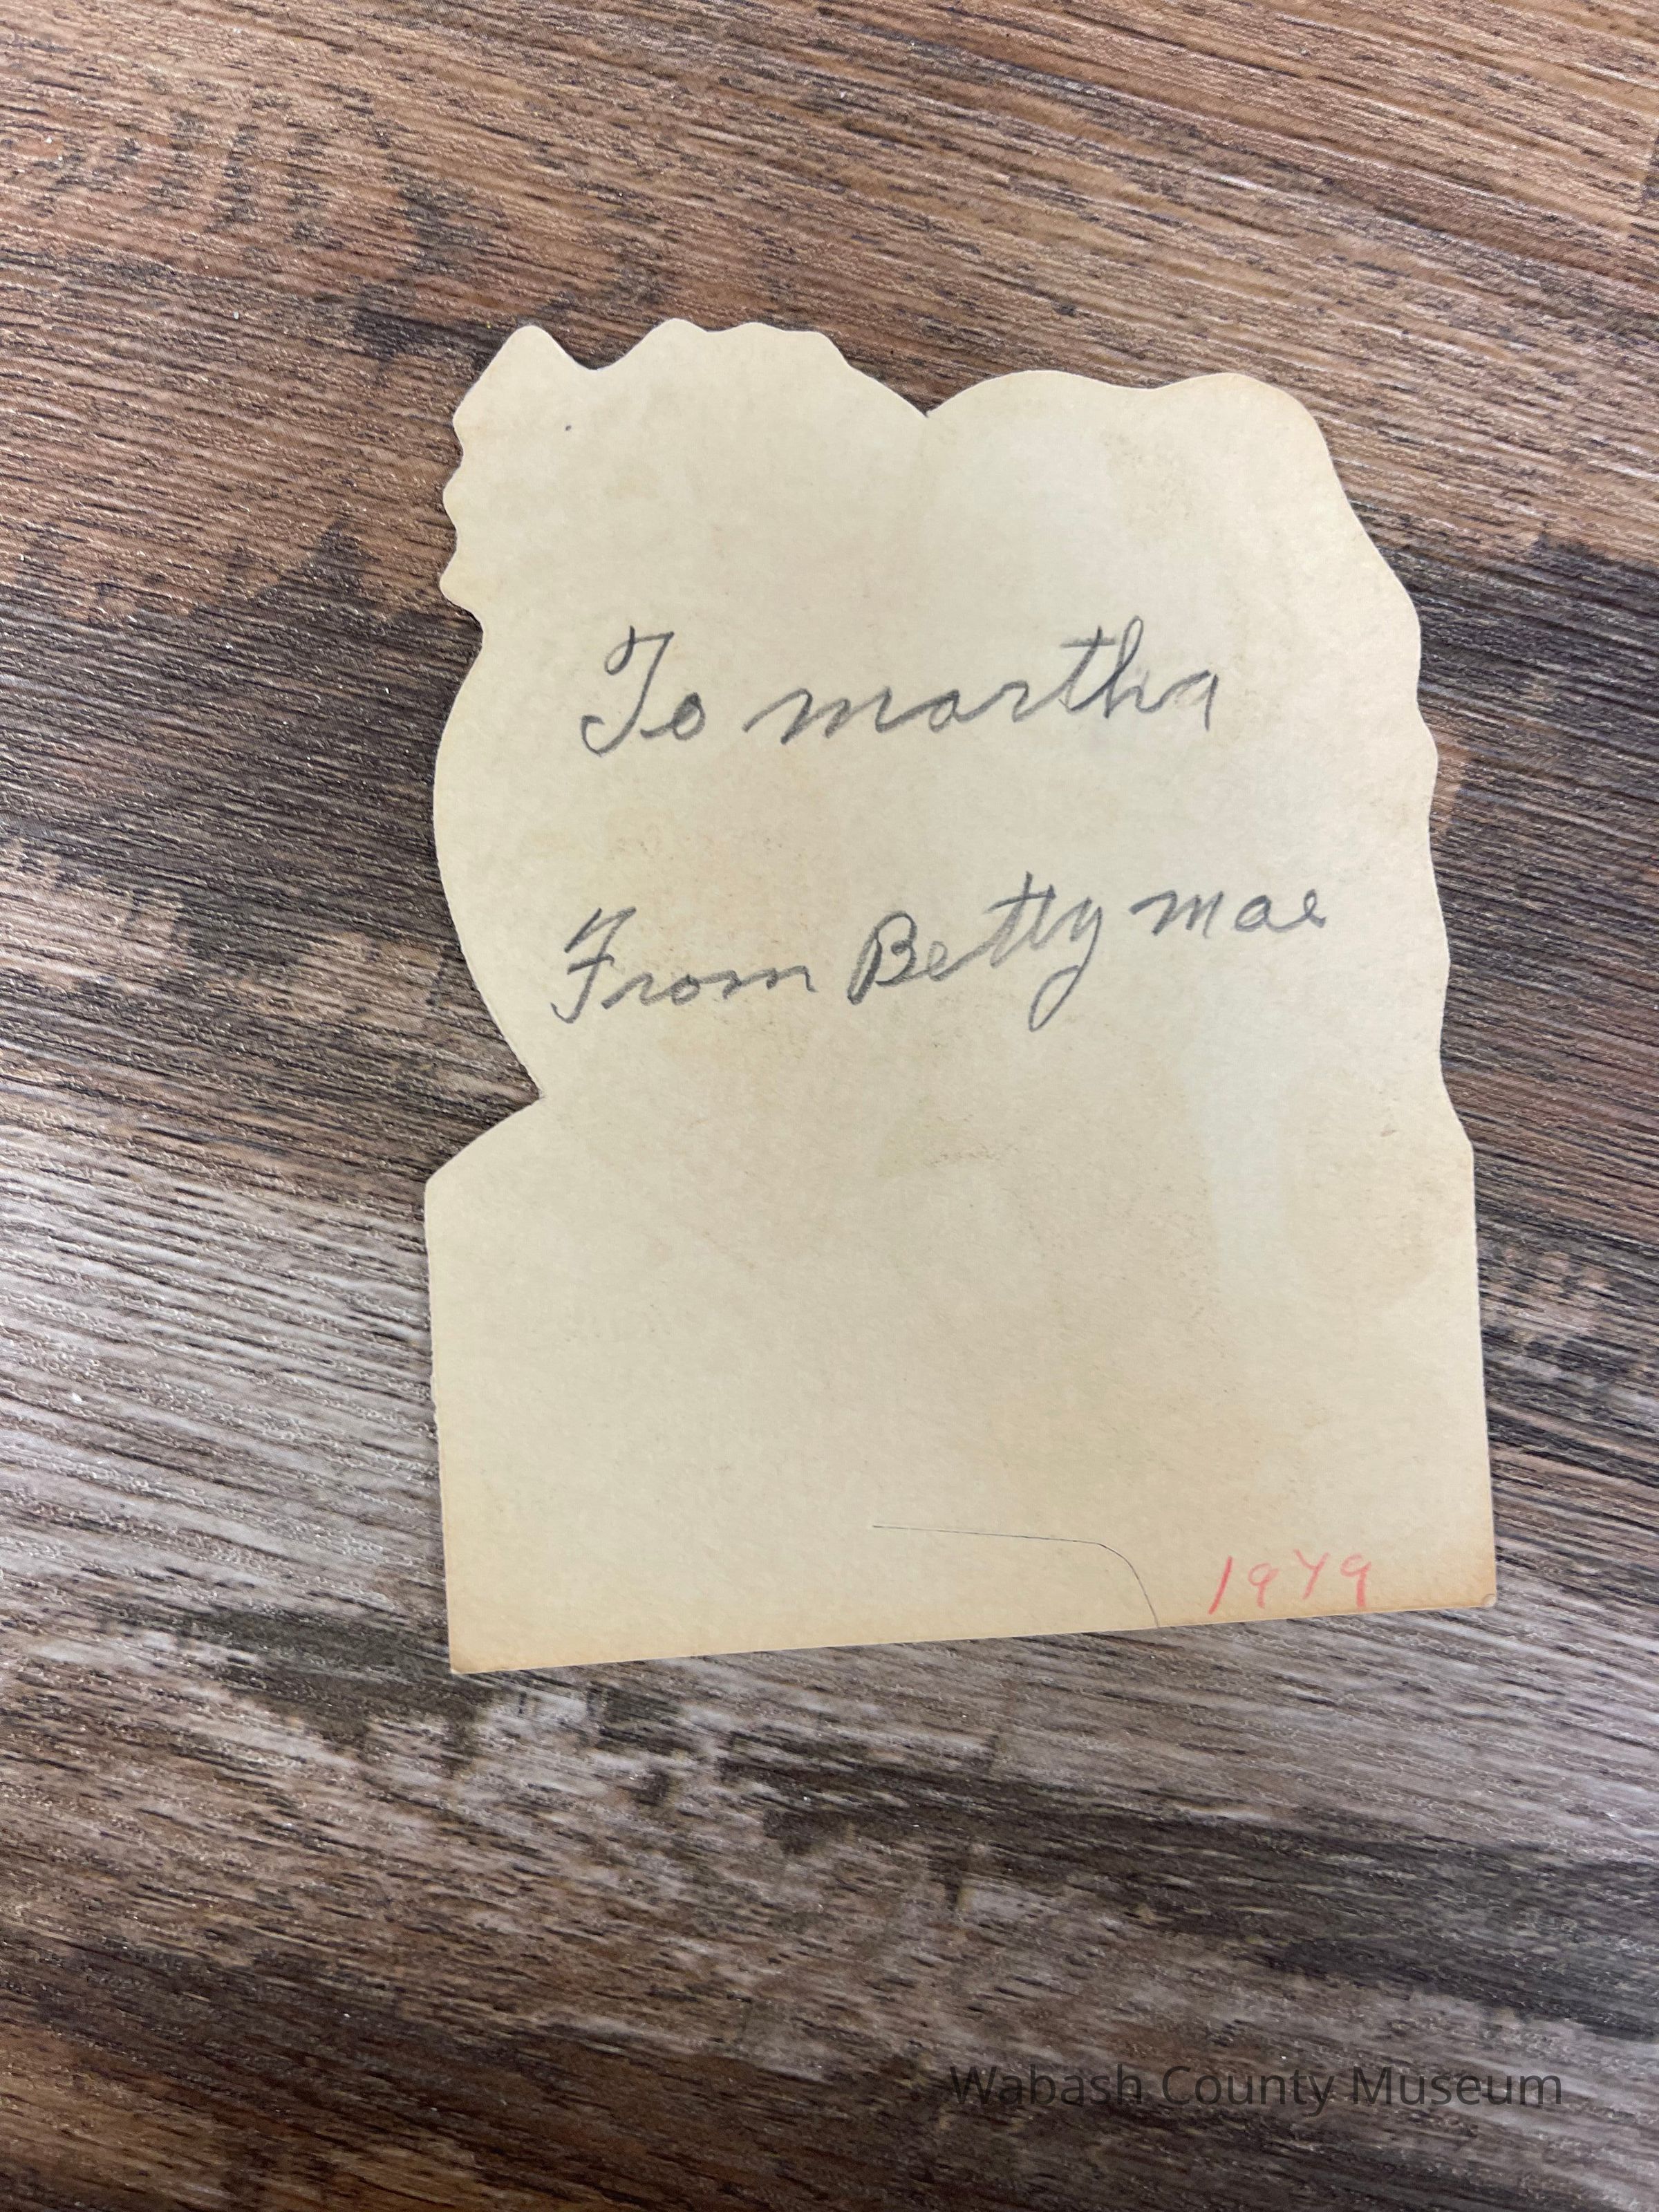 To martha
From Betty mae
1979
Wabash County Museum